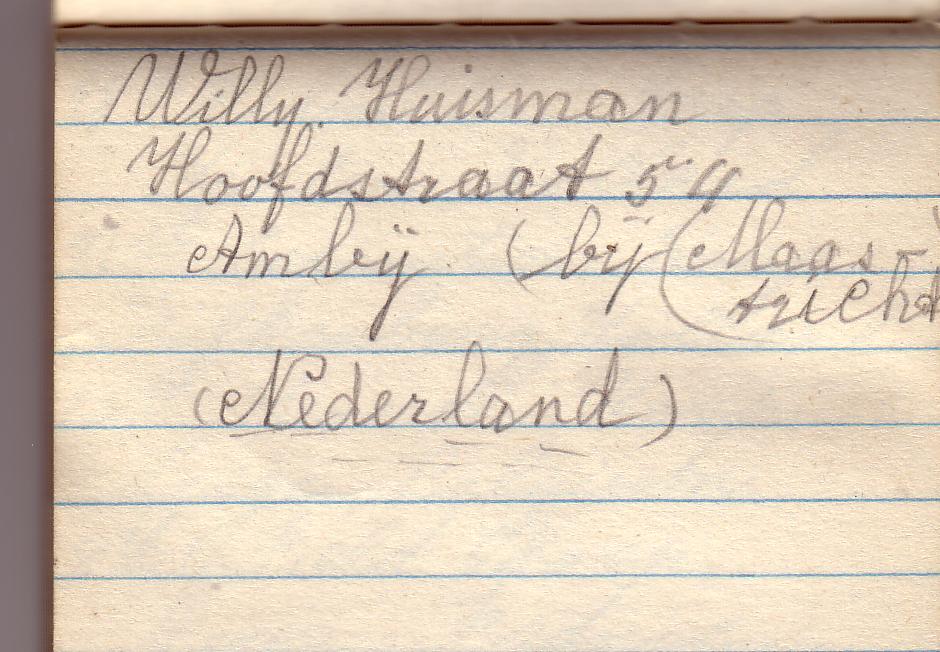 Willy. Huisman
Hoofdstraat 59
Ambij (bij (Maas-
tricht
(Nederland)